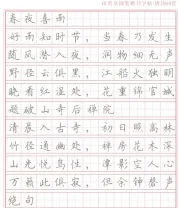 春夜喜雨
好雨知时节，当春乃发生
随风潜入夜，润物细无声
野径云俱黑，江船火独明
晓看红湿处，花重锦官城
题破山寺后禅院
清晨入古寺，初日照高林
竹径通幽处，禅房花木深
山光悦鸟性，潭影空人心
万籁此俱寂，但余钟磬声
绝句